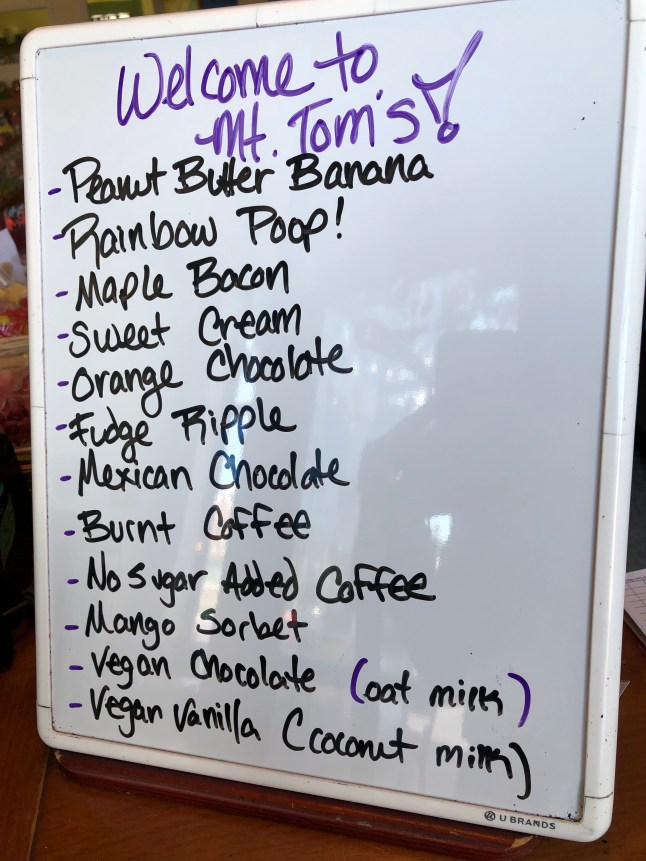 Welcome to
Mt. Tom's!
- Peanut Butter Banana
- Rainbow Poop!
- Maple Bacon
- Sweet Cream
- Orange Chocolate
- Fudge Ripple
- Mexican Chocolate
- Burnt Coffee
- No Sugar Added Coffee
- Mango Sorbet
- Vegan Chocolate (oat milk)
- Vegan Vanilla (coconut milk)
U BRANDS